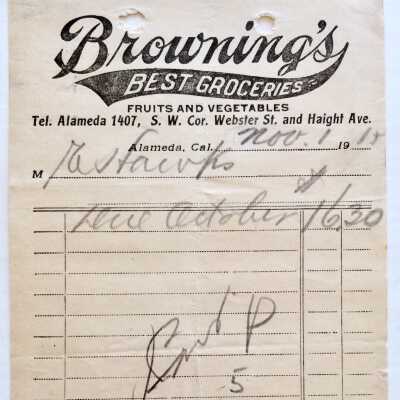 Browning's
BEST GROCERIES
FRUITS AND VEGETABLES
Tel. Alameda 1407, S. W. Cor. Webster St. and Haight Ave.
Alameda, Cal. Nov. 1 1910
M
Due October $16.30
5